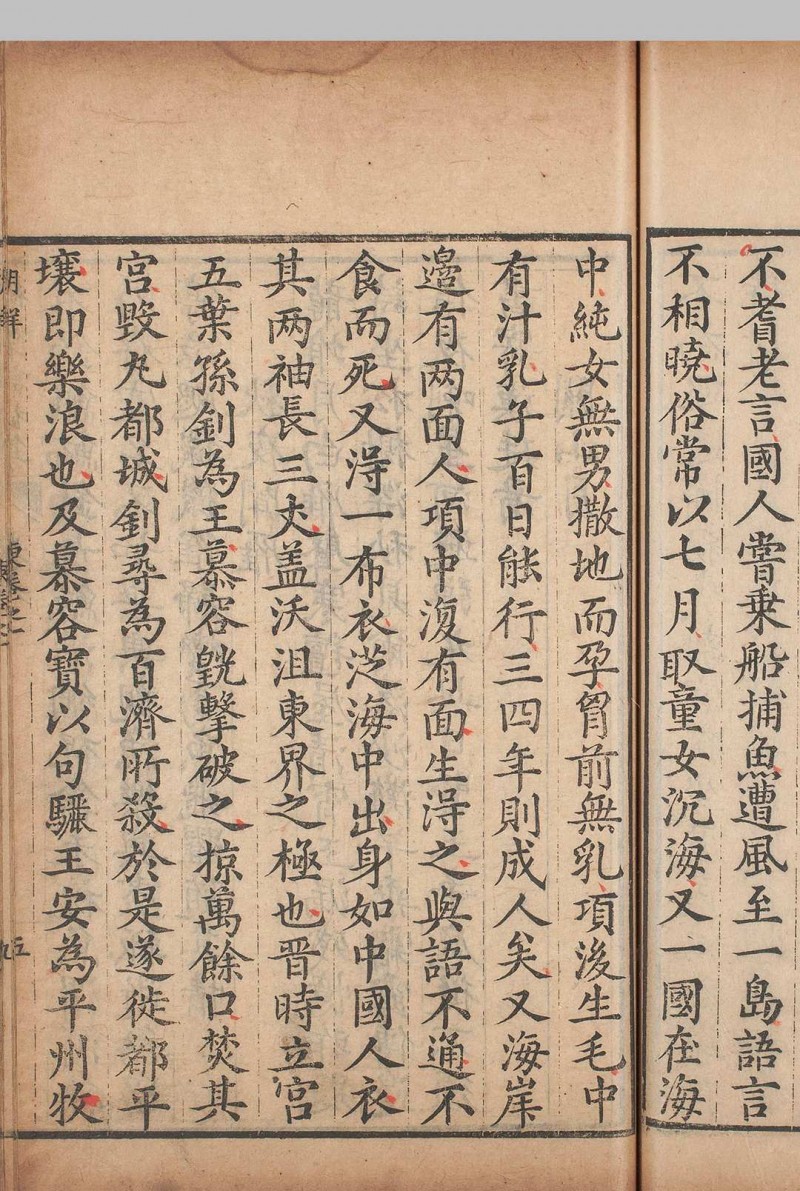 不耆老言國人嘗乗船捕魚遭風至一島語言
不相曉俗常以七月取童女沉海又一國在海
中純女無男撒地而孕胷前無乳項後生毛中
有汁乳子百日能行三四年則成人矣又海岸
邉有两面人項中復有面生淂之與語不通不
食而死又淂一布衣從海中出身如中國人衣
其两袖長三丈盖沃沮東界之極也晋時立宮
五葉孫釗為王慕容皝擊破之掠萬餘口焚其
宮毀丸都城釗尋為百濟所殺於是遂徙都平
壤即樂浪也及慕容寶以句驪王安為平州牧
朝鮮
東卷之一
五
九